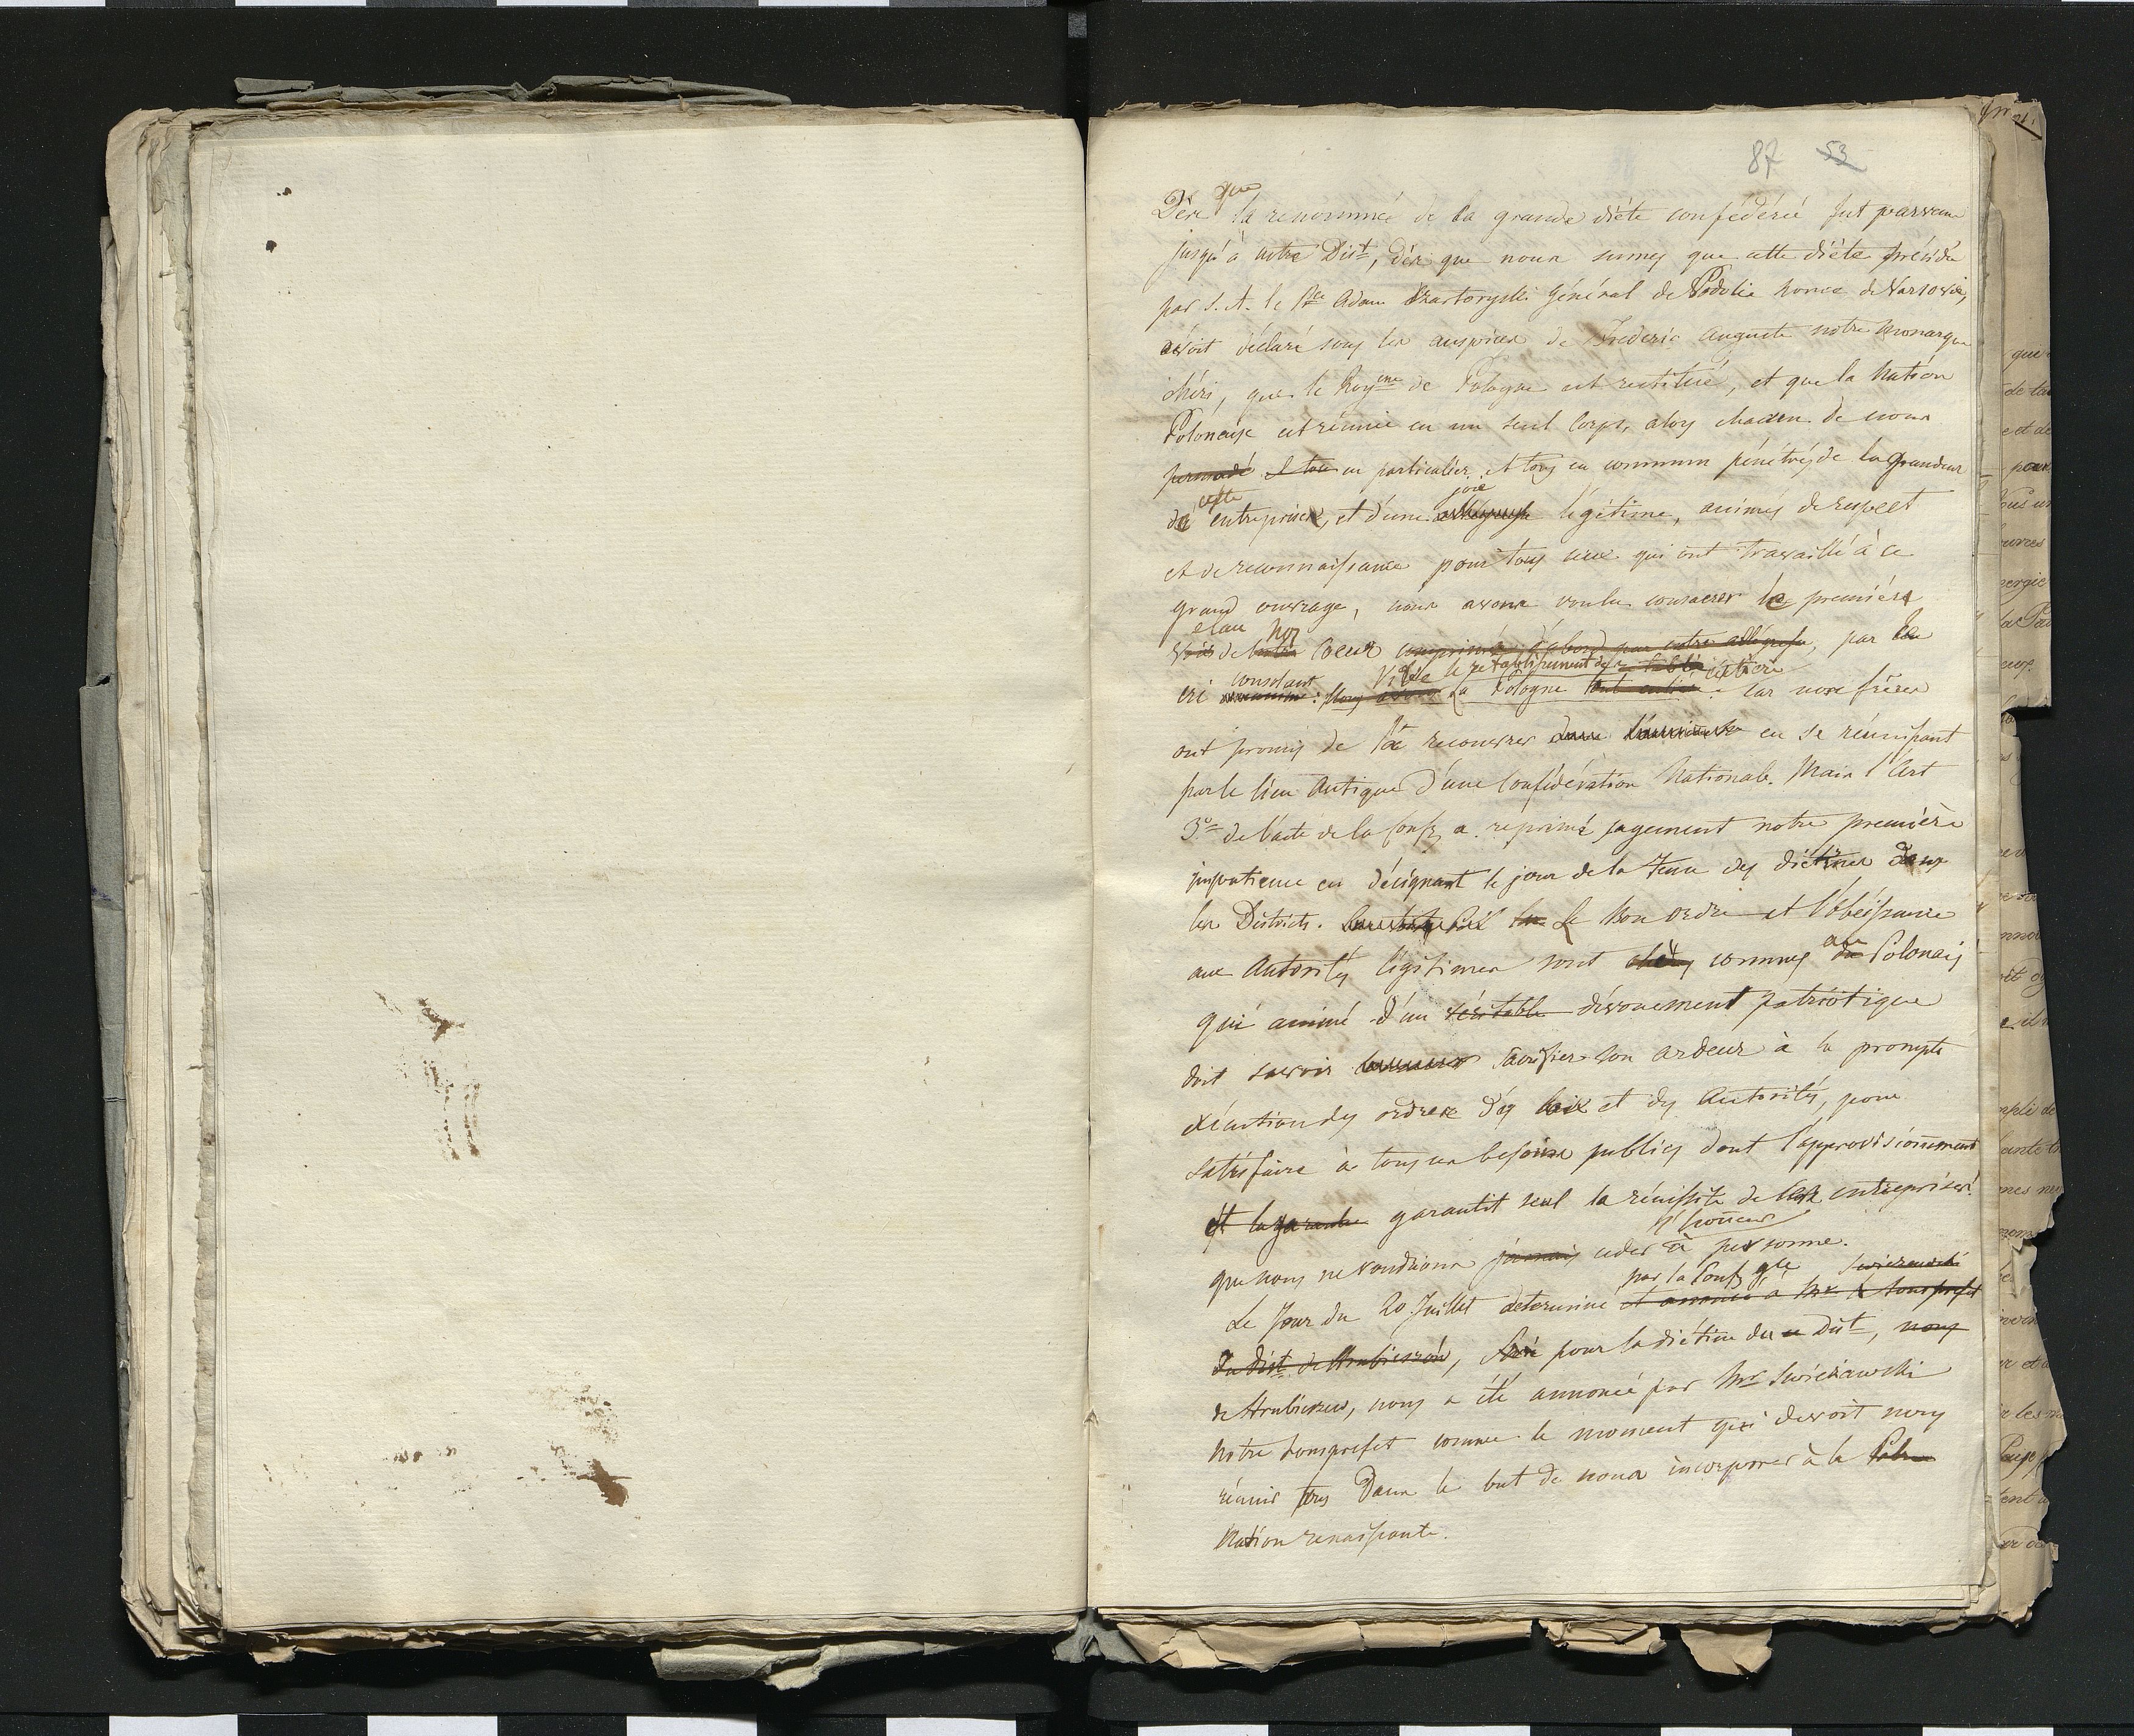 87 53
que
Dès la renommée de la grande diéte confédérée fut parvenu
jusqu'à notre Dist, dès que nous sumes que cette diéte présidée
par S. A. le Pce Adam Czartoryski Général de Podolie nonce de Varsovie,
avoit déclaré sous les auspices de Frederic Auguste notre Monarque
chéri, que le Royme de Pologne est restitué, et que la Nation
Polonaise est réunie en un seul Corps, alors chacun de nous
persuadé en particulier et tous en commun pénétrés de la grandeur
cette joie
de entreprise, et d'une allégresse légitime, animés de respect
et de reconnaissance pour tous ceux qui ont travaillé à ce
grand ouvrage, nous avons voulu consacrer le premiére
elan nos
voix de notre Coeur comprimée d'abord par notre allégresse, par le
consolant Vive le retablissement de entiere
cri unanime: Nous avons La Pologne tout entiere. Car nos frères
ont promis de la recouvrer en se réunissant
par le lien Antique d'une Confédération Nationale. Mais l'Art
3e de l'acte de la Conf. a réprimé sagement notre première
impatience en désignant le jour de la Tenue des diétines dans
les Districts. Le bon ordre et l'obéissance
au
aux Autorités légitimes sont connues du Polonais
qui animé d'un véritable dévouement patriotique
doit savoir sacrifier son ardeur à la prompte
exécution des ordres des loix et des Autorités, pour
satisfaire à tous les besoins publics dont l'approvisionnement
est la garantie garantit seul la réussite de cette entreprise
l'honneur
que nous ne voudrions jamais ceder à personne.
par la Conf. gle Swiezawski
Le Jour du 20 Juillet determiné et annoncé à Mr le Sousprefet
du dist de Hrubieszow, pour la diétine du Dist, nous
de Hrubieszow, nous a été annoncé par Mr Swiezawski
Notre Sousprefet comme le moment qui devoit nous
réunir tous Dans le but de nous incorporer à la
Nation renaissante.